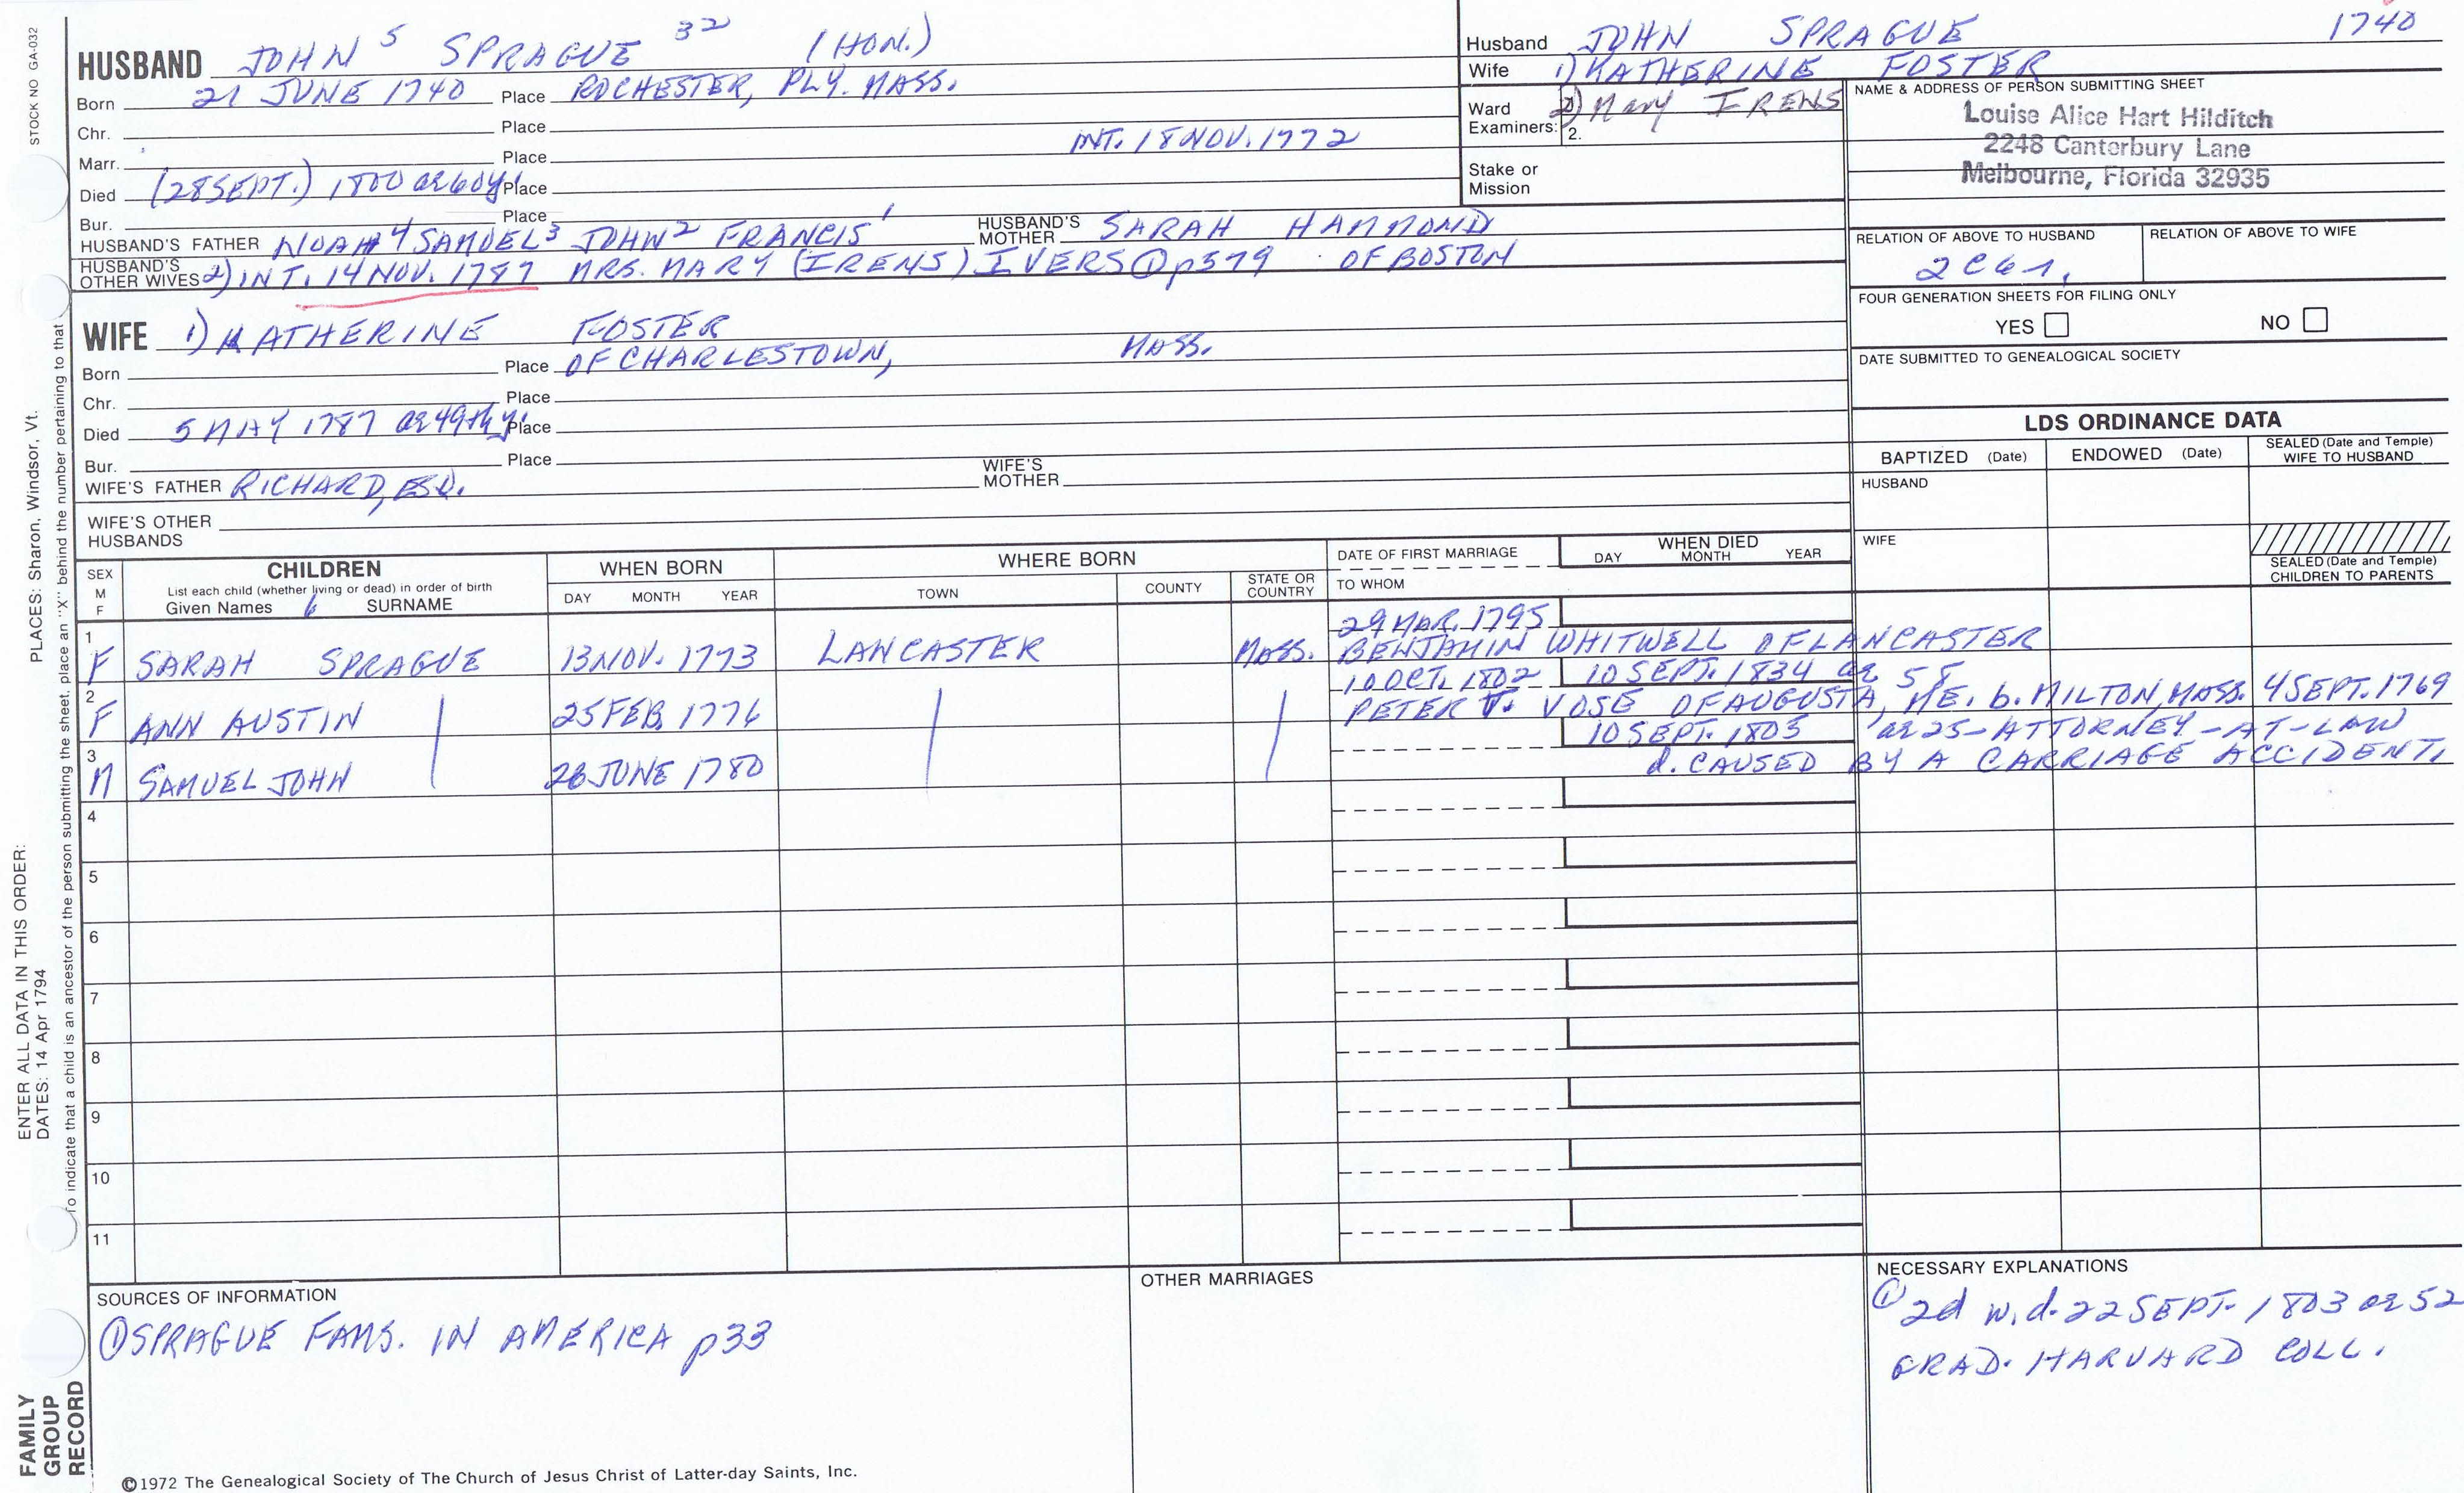 STOCK NO GA-032
HUSBAND JOHN 5 SPRAGUE 32 (HON.)
Born 21 JUNE 1740 Place ROCHESTER, PLY. MASS.
Chr. Place
Marr. Place INT. 18 NOV. 1772
Died (28 SEPT.) 1800 ae 60y. Place
Bur. Place
HUSBAND'S FATHER NOAH 4 SAMUEL 3 JOHN 2 FRANCIS 1 HUSBAND'S MOTHER SARAH HAMMOND
HUSBAND'S OTHER WIVES 2) INT. 14 NOV. 1787 MRS. MARY (IRENS) IVERS ① p579 OF BOSTON
Husband JOHN SPRAGUE 1740
Wife 1) KATHERINE FOSTER
Ward Examiners: 2) Mary IRENS
2.
Stake or Mission
NAME & ADDRESS OF PERSON SUBMITTING SHEET
Louise Alice Hart Hilditch
2248 Canterbury Lane
Melbourne, Florida 32935
RELATION OF ABOVE TO HUSBAND RELATION OF ABOVE TO WIFE
FOUR GENERATION SHEETS FOR FILING ONLY
YES NO
DATE SUBMITTED TO GENEALOGICAL SOCIETY
WIFE 1) KATHERINE FOSTER
Born Place OF CHARLESTOWN, MASS.
Chr. Place
Died 5 MAY 1787 ae 49th y. Place
Bur. Place
WIFE'S FATHER RICHARD, ESQ. WIFE'S MOTHER
WIFE'S OTHER HUSBANDS
LDS ORDINANCE DATA
BAPTIZED (Date) ENDOWED (Date) SEALED (Date and Temple) WIFE TO HUSBAND
HUSBAND
WIFE
SEALED (Date and Temple) CHILDREN TO PARENTS
SEX M F CHILDREN WHEN BORN WHERE BORN DATE OF FIRST MARRIAGE WHEN DIED
List each child (whether living or dead) in order of birth
Given Names SURNAME DAY MONTH YEAR TOWN COUNTY STATE OR COUNTRY TO WHOM DAY MONTH YEAR
1 29 MAR. 1795
F SARAH SPRAGUE 13 NOV. 1773 LANCASTER MASS. BENJAMIN WHITWELL OF LANCASTER
2 10 OCT. 1802 10 SEPT. 1834 ae 58
F ANN AUSTIN 25 FEB. 1776 PETER T. VOSE OF AUGUSTA, ME. b. MILTON, MASS. 4 SEPT. 1769
3 10 SEPT. 1805 ae 25 - ATTORNEY-AT-LAW
M SAMUEL JOHN 28 JUNE 1780 d. CAUSED BY A CARRIAGE ACCIDENT.
4
5
6
7
8
9
10
11
SOURCES OF INFORMATION
① SPRAGUE FAMS. IN AMERICA p33
OTHER MARRIAGES
NECESSARY EXPLANATIONS
① 2d w. d. 22 SEPT. 1803 ae 52
GRAD. HARVARD COLL.
©1972 The Genealogical Society of The Church of Jesus Christ of Latter-day Saints, Inc.
ENTER ALL DATA IN THIS ORDER:
DATES: 14 Apr 1794 PLACES: Sharon, Windsor, Vt.
To indicate that a child is an ancestor of the person submitting the sheet, place an "X" behind the number pertaining to that
FAMILY GROUP RECORD